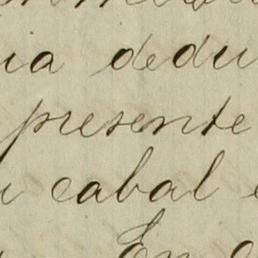 ia dedu
presente
cabal
En